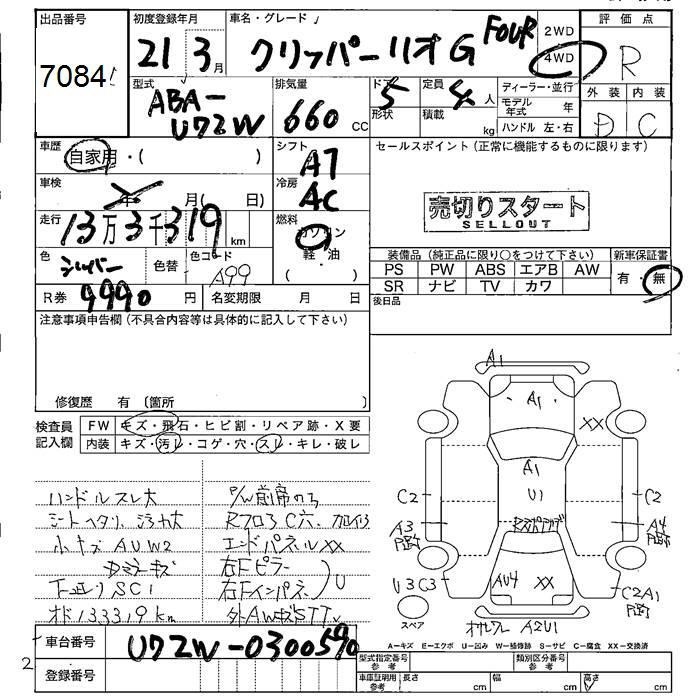 出品番号
7084
初度登録年月
21 3月
車名・グレード
クリッパーリオ G FOUR
2WD
4WD
評価点
R
型式
ABA-
U72W
排気量
660 cc
ドア
5
形状
定員
4人
積載
kg
ディーラー・並行
モデル年式 年
ハンドル 左・右
外装 内装
D C
車歴
自家用・( )
シフト
AT
セールスポイント(正常に機能するものに限ります)
車検
年 月( 日)
冷房
AC
売切りスタート
SELLOUT
走行
13万3千319km
燃料
ガソリン
軽・油
( )
色
シルバー
色替
色コード
A99
装備品(純正品に限り○をつけて下さい)
新車保証書
PS PW ABS エアB AW
SR ナビ TV カワ
有・無
R券
9990円
名変期限 月 日
後日品
注意事項申告欄(不具合内容等は具体的に記入して下さい)
修復歴 有 (箇所 )
検査員
記入欄
FW キズ・飛石・ヒビ割・リペア跡・X要
内装 キズ・汚レ・コゲ・穴・スレ・キレ・破レ
ハンドルスレ大
シートヘタリ、汚れ大
小キズAUW2
下廻りSC1
オド133319km
P/W前席のみ
エンドパネルXX
右Fピラー
右Fインパネ
U
A1
A1
XX
A1
U1
C2
C2
A3
A4
AU4
XX
U3C3
C2A1
スペア
A2U1
A=キズ E=エクボ U=凹み W=補修跡 S=サビ C=腐食 XX=交換済
車台番号
U72W-0300590
登録番号
2
型式指定番号
参考
類別区分番号
参考
車庫証明用
参考
長さ cm 幅 cm 高さ cm